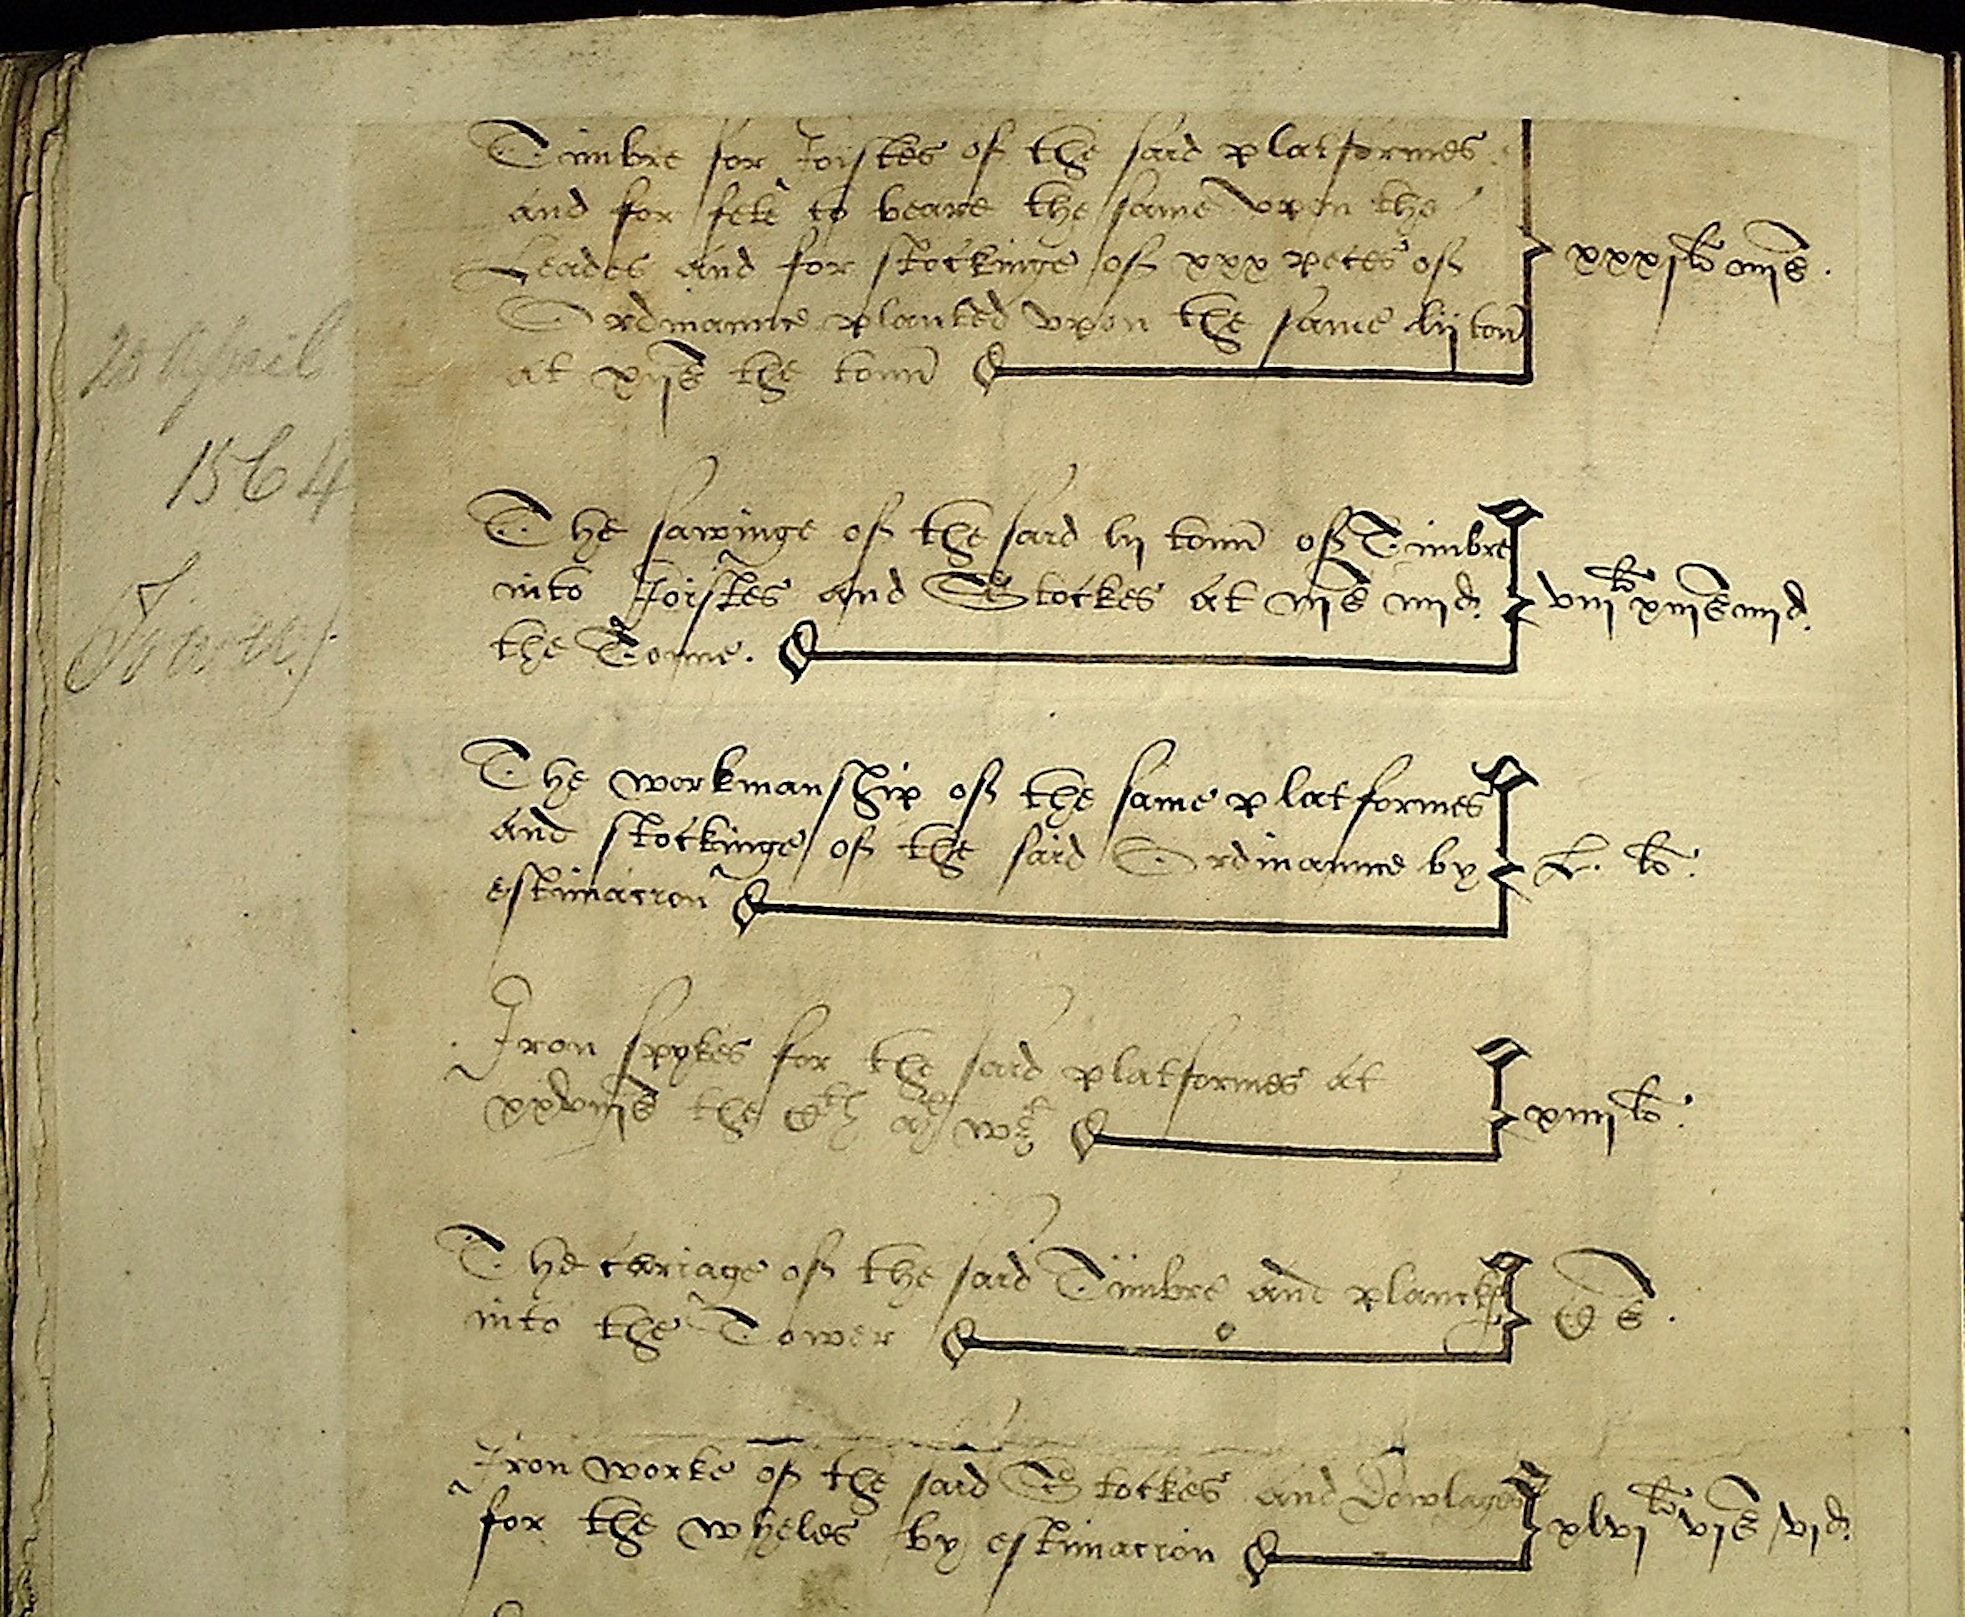 Timbre for Joistes of the said platformes
and for fete to beare the same vpon the
Leades and for stockinge of xxx peces of
Ordinaunce planted vpon the same lii tonn
at xiis the tonn
xxxili iiiis.
20 April
1564
The sawinge of the said lii tonn of Timbre
into Joistes and Stockes at iiis iiiid.
the Tonne.
viiili xiiis iiiid.
Tower
The workmanship of the same platformes
and stockinge of the said Ordinaunce by
estimacion
L. li.
Iron spykes for the said platformes at
xxviiis the Cth
xiiiili.
The cariage of the said Timbre and planckes
into the Tower
C s.
Iron worke of the said Stockes and Dowlages
for the wheles by estimacion
xlvili vis vid.